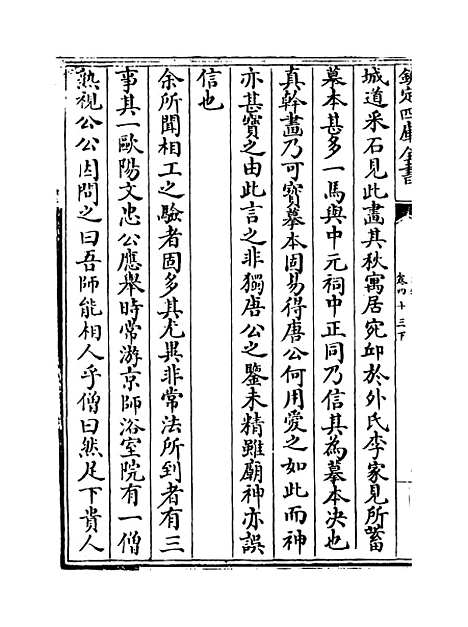 欽定四庫全書
卷四十三下
城道采石見此畫其秋寓居宛邱於外氏李家見所蓄
摹本甚多一馬與中元祠中正同乃信其為摹本决也
真幹畫乃可寳摹本固易得唐公何用愛之如此而神
亦甚寳之由此言之非獨唐公之鑒未精雖廟神亦誤
信也
余所聞相工之驗者固多其尤異非常法所到者有三
事其一歐陽文忠公應舉時常游京師浴室院有一僧
熟視公公因問之曰吾師能相人乎僧曰然足下貴人